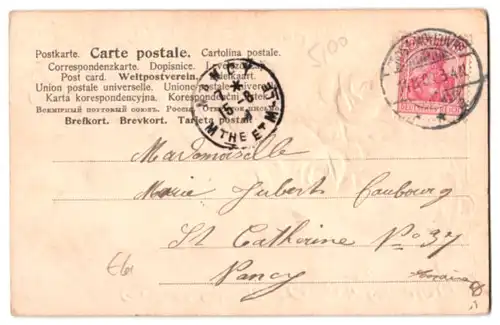 Postkarte. Carte postale. Cartolina postale.
Correspondenzkarte. Dopisnice. Levelezö-
Post card. Weltpostverein. Briefkaart.
Union postale universelle. Unione postale universale.
Karta korespondencyjna. Korespondenční lístek.
Всемірный почтовый союзъ. Россія. Открытое письмо.
Brefkort. Brevkort. Tarjeta postal.
5/00
NANCY
MTHE ET MLLE
Mademoiselle
Marie Hubert Faubourg
St Catherine No 37
Nancy
E61